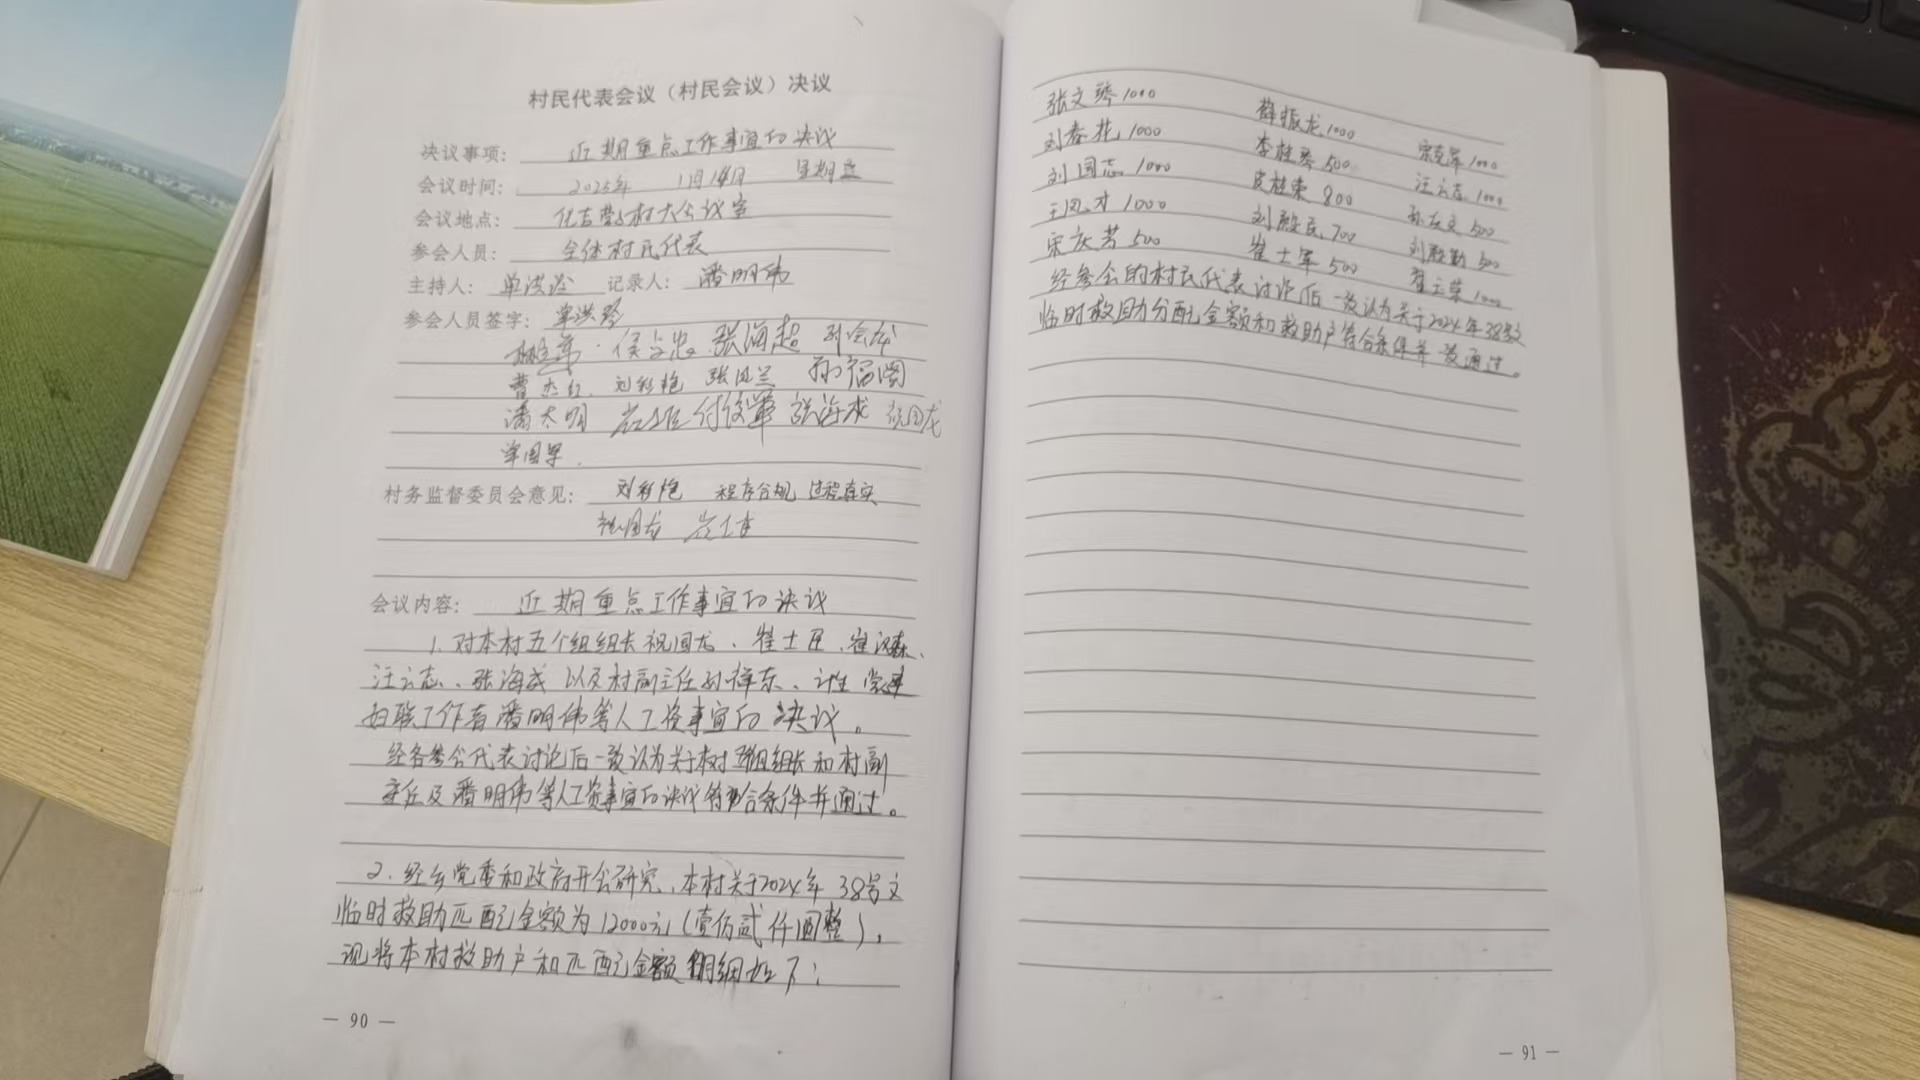 村民代表会议（村民会议）决议
决议事项： 近期重点工作事宜的决议
会议时间： 2025年 1月14日 星期
会议地点： 化吉营村大会议室
参会人员： 全体村民代表
主持人： 单洪 记录人： 潘明伟
参会人员签字： 单洪
侯 忠 张海超 孙会
曹杰红 刘彩艳 张凤兰 孙福国
潘太明 付俊军 张海成 祝国龙
单国军
村务监督委员会意见： 刘彩艳 程序合规 过程真实
祝国龙
会议内容： 近期重点工作事宜的决议
1. 对本村五个组组长祝国龙、崔士臣、崔汉森、
汪云志、张海成以及村副主任孙祥东、计生党建
妇联工作者潘明伟等人工资事宜的决议。
经各参会代表讨论后一致认为关于村五组组长和村副
主任及潘明伟等人工资事宜的决议符合条件并通过。
2. 经乡党委和政府开会研究，本村关于2024年38号文
临时救助匹配金额为12000元（壹佰贰仟圆整），
现将本村救助户和匹配金额明细如下：
— 90 —
张文琴1000 薛振龙1000 宋克军1000
刘春花1000 李桂琴500 汪云志1000
刘国志1000 皮桂荣800 孙友文500
王凤才1000 刘殿民700 刘殿勤500
宋庆芳500 崔士军500 翟云荣1000
经参会的村民代表讨论后一致认为关于2024年38号文
临时救助分配金额和救助户符合条件并一致通过。
— 91 —